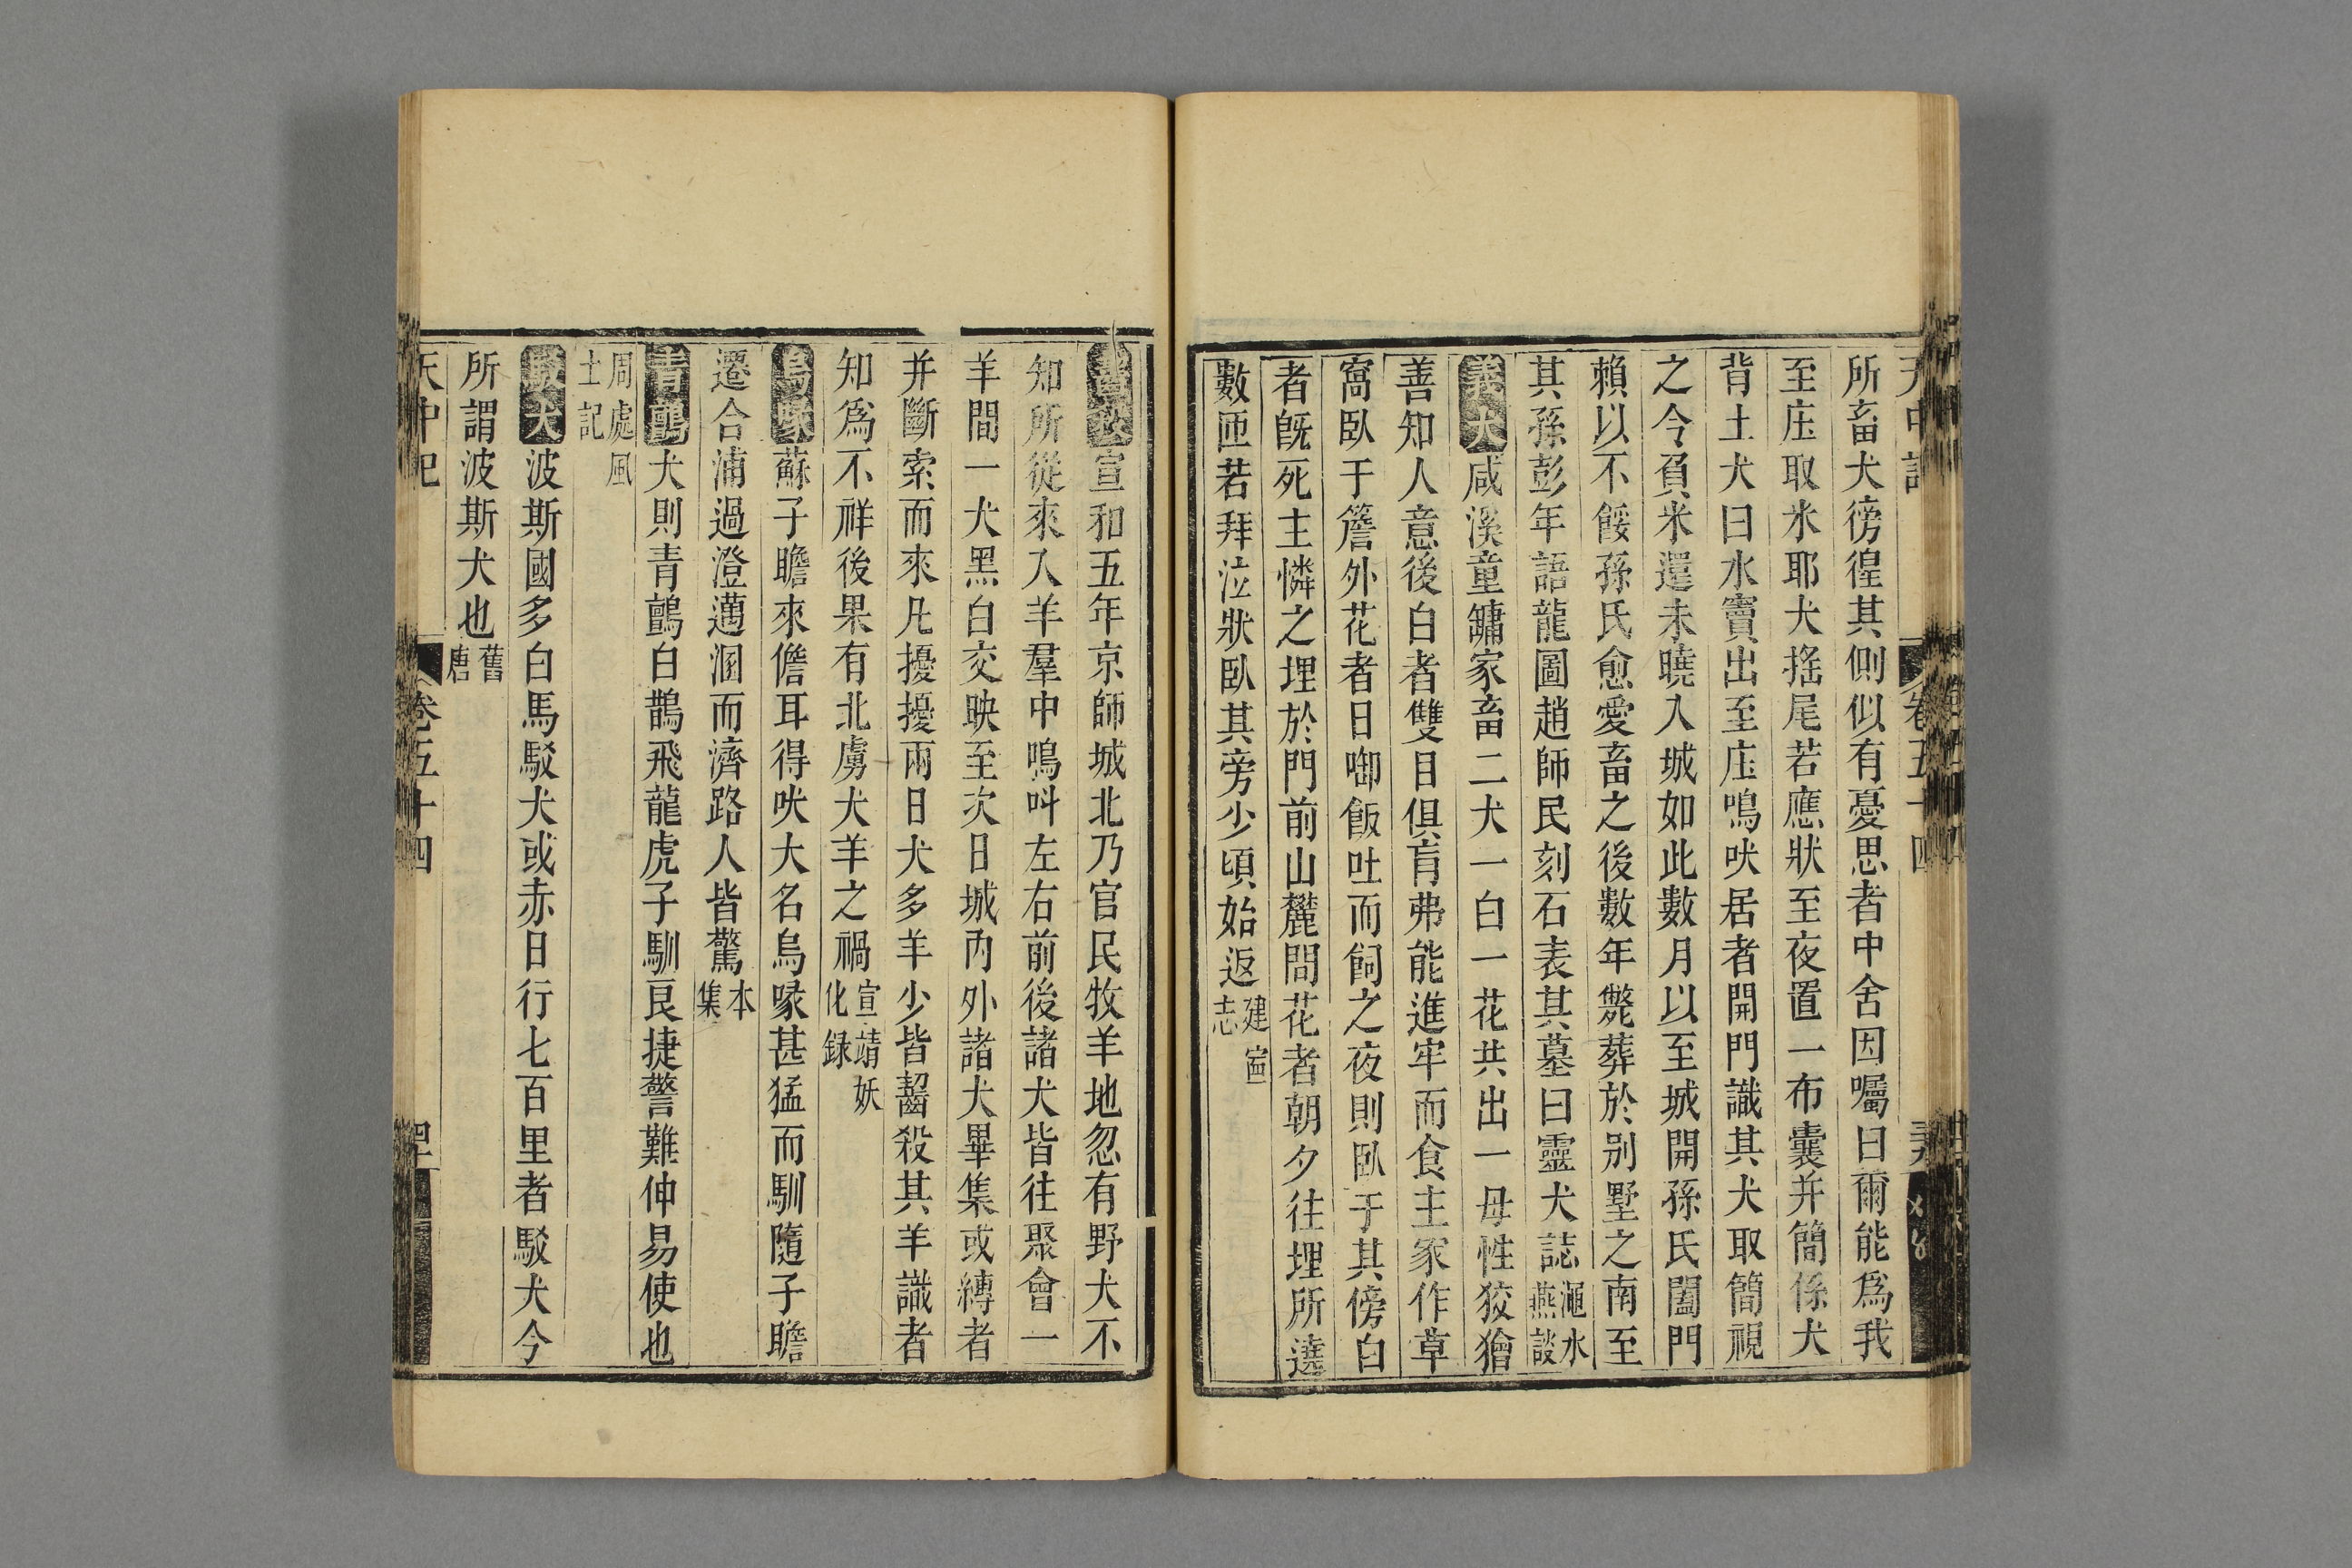 天中記 卷五十四
所畜犬徬徨其側似有憂思者中舍因囑曰爾能爲我
至庄取米耶犬揺尾若應狀至夜置一布囊并簡係犬
背上犬曰水竇出至庄鳴吠居者開門識其犬取簡視
之令負米還未曉入城如此數月以至城開孫氏闔門
賴以不餒孫氏愈愛畜之後數年斃葬於别墅之南至
其孫彭年語龍圖趙師民刻石表其墓曰靈犬誌澠水燕談
義犬咸溪童鏞家畜二犬一白一花共出一母性狡獪
善知人意後白者雙目俱盲弗能進牢而食主家作草
窩臥于簷外花者日啣飯吐而飼之夜則臥于其傍白
者旣死主憐之埋於門前山麓間花者朝夕往埋所遶
數匝若拜泣狀臥其旁少頃始返建寍志
宣和五年京師城北乃官民牧羊地忽有野犬不
知所從來入羊羣中鳴呌左右前後諸犬皆往聚會一
羊間一犬黑白交映至次日城內外諸犬畢集或縛者
并斷索而來凡擾擾兩日犬多羊少皆齧殺其羊識者
知爲不祥後果有北虜犬羊之禍宣靖妖化録
烏喙蘇子瞻來儋耳得吠犬名烏喙甚猛而馴隨子瞻
遷合浦過澄邁涸而濟路人皆驚本集
青鸇犬則青鸇白鵲飛龍虎子馴良捷警難伸易使也
周處風土記
駁犬波斯國多白馬駁犬或赤日行七百里者駁犬今
所謂波斯犬也舊唐
天中記 卷五十四